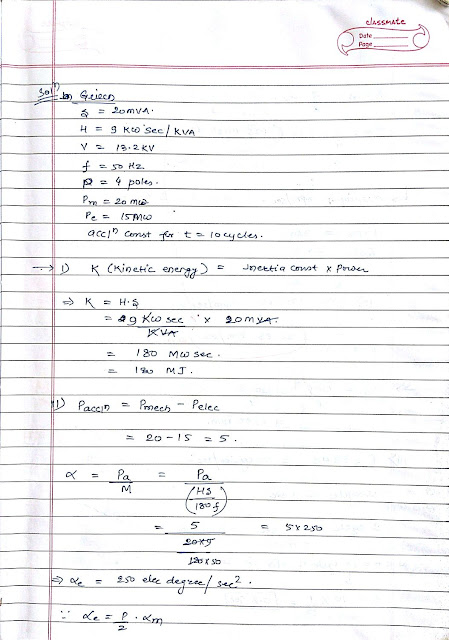 classmate
Date
Page
Soln Given
S = 20 MVA.
H = 9 KW sec/KVA
V = 13.2 KV
f = 50 Hz
P = 4 poles.
Pm = 20 MW
Pe = 15 MW
accln const for t = 10 cycles.
→ 1) K (Kinetic energy) = inertia const x power
⇒ K = H.S
= 9 KW sec / KVA x 20 MVA.
= 180 MW sec.
= 180 MJ.
11) Paccln = Pmech - Pelec
= 20 - 15 = 5.
α = Pa / M = Pa / (HS / 180 f)
= 5 / (20×9 / 180×50) = 5×250
⇒ αe = 250 elec degree/sec².
∵ αe = P/2 . αm